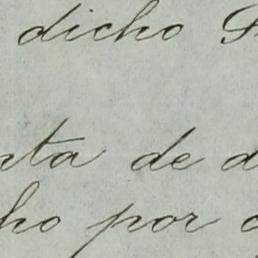 dicho
nta de d
ho por